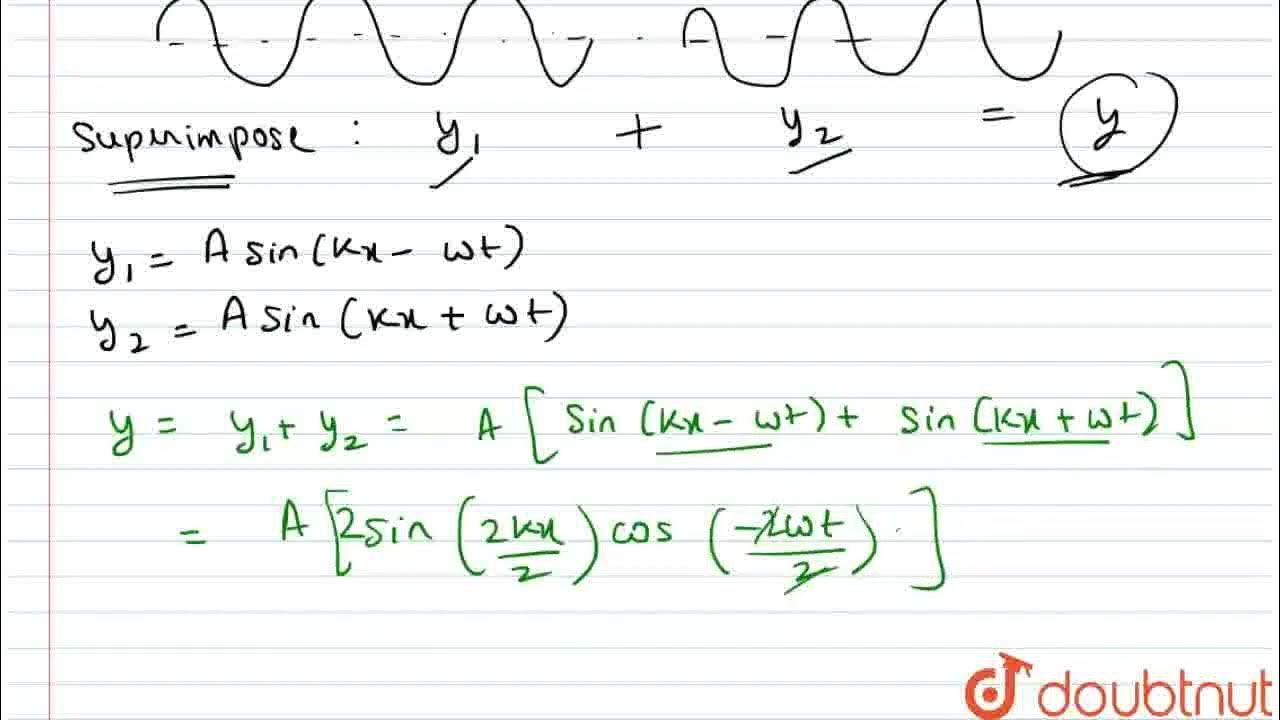 Superimpose : y₁ + y₂ = y
y₁ = A sin (kx - ωt)
y₂ = A sin (kx + ωt)
y = y₁ + y₂ = A [ sin (kx - ωt) + sin (kx + ωt) ]
= A [ 2 sin ( 2kx / 2 ) cos ( -2ωt / 2 ) . ]
doubtnut